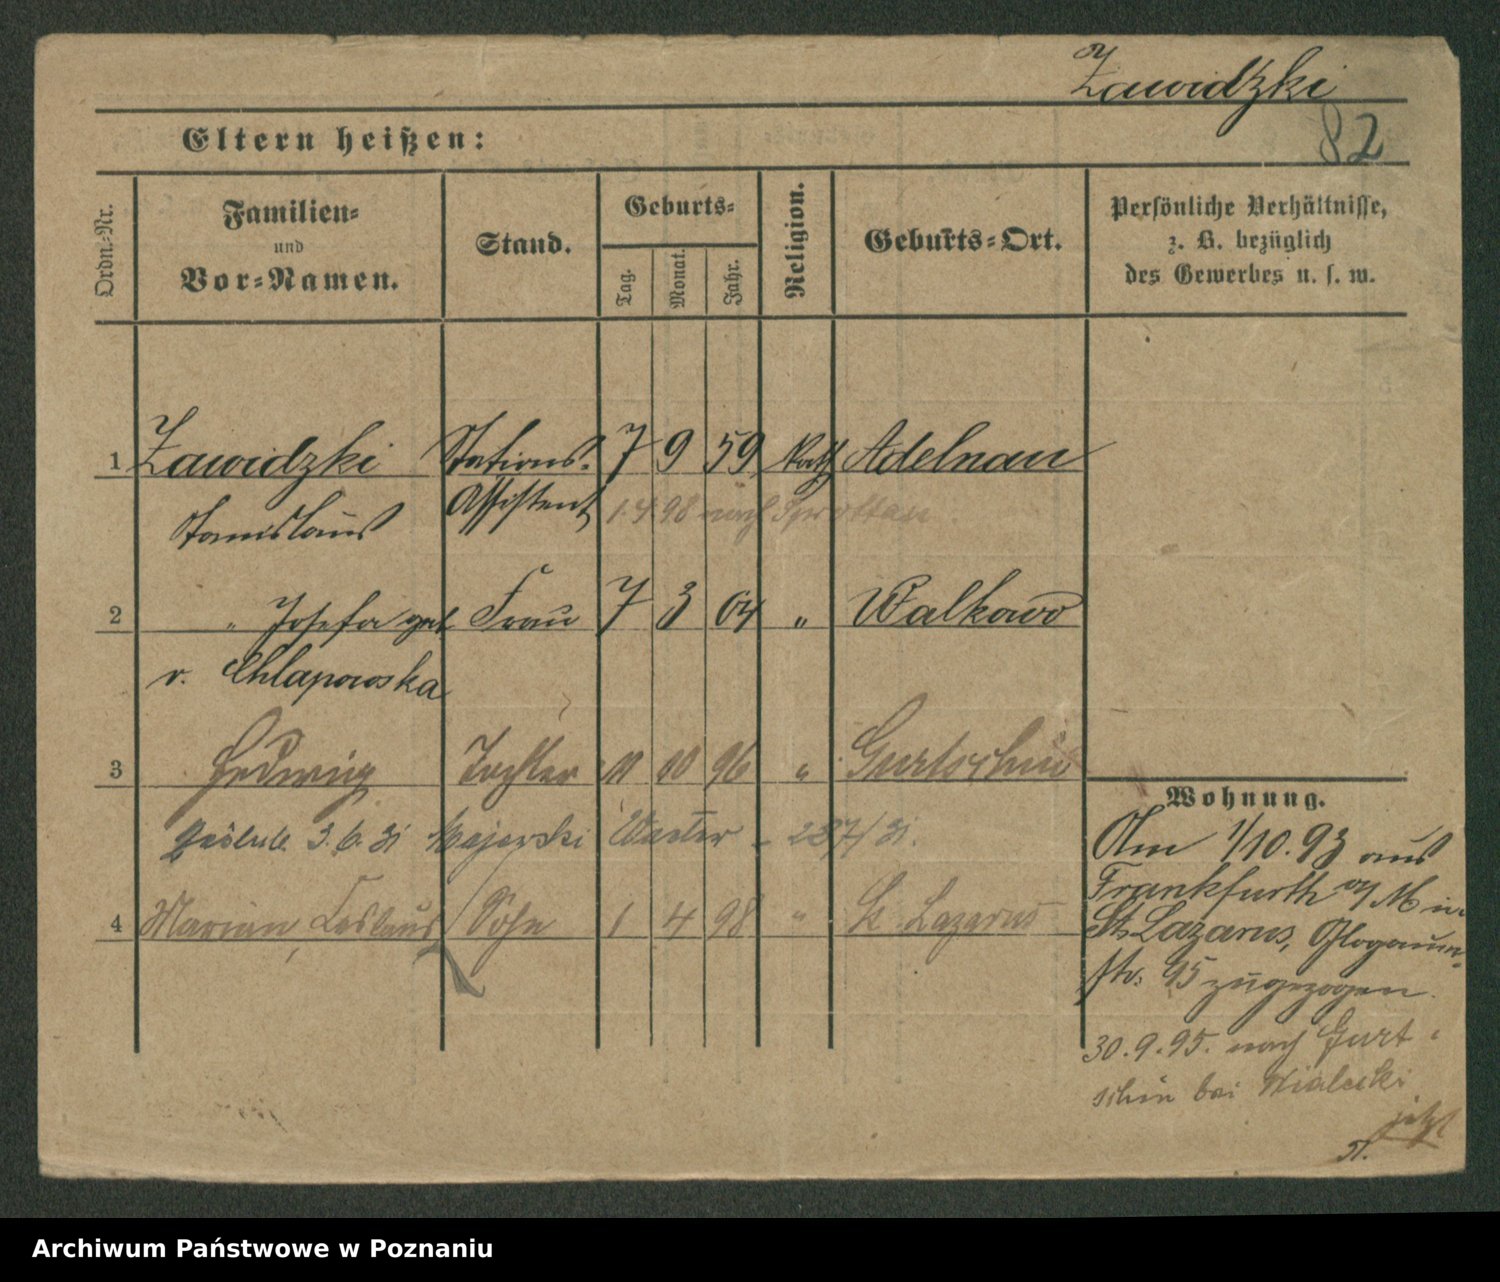 Zawidzki
82
Eltern heißen:
Ordn.-Nr.
Familien-
und
Vor-Namen.
Stand.
Geburts-
Tag.
Monat.
Jahr.
Religion.
Geburts-Ort.
Persönliche Verhältnisse,
z. B. bezüglich
des Gewerbes u. s. w.
1 Zawidzki Stations- 7 9 59 kath Adelnau
Stanislaus Assistent 1.4.98 nach Sprottau.
2 " Josefa geb Frau 7 3 64 " Walkowo
v. Chlapowska
3 Hedwig Tochter 11 10 96 " Gurtschin
3.6.31 Majewski 237/31.
4 Marian, Ceslaus Sohn 1 4 98 " St. Lazarus
Wohnung.
Am 1/10.93 aus
Frankfurth a/M in
St. Lazarus, Glogauer-
str. 95 zugezogen.
30.9.95. nach Gurt-
schin bei Bialecki
jetzt
Archiwum Państwowe w Poznaniu